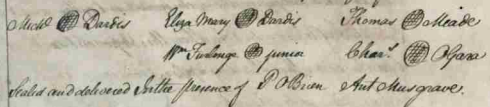 Michl Dardis Eliza Mary Dardis Thomas Meade
Wm Furlonge junior Chars. OGara
Sealed and delivered In the presence of P OBrien Ant Musgrave.